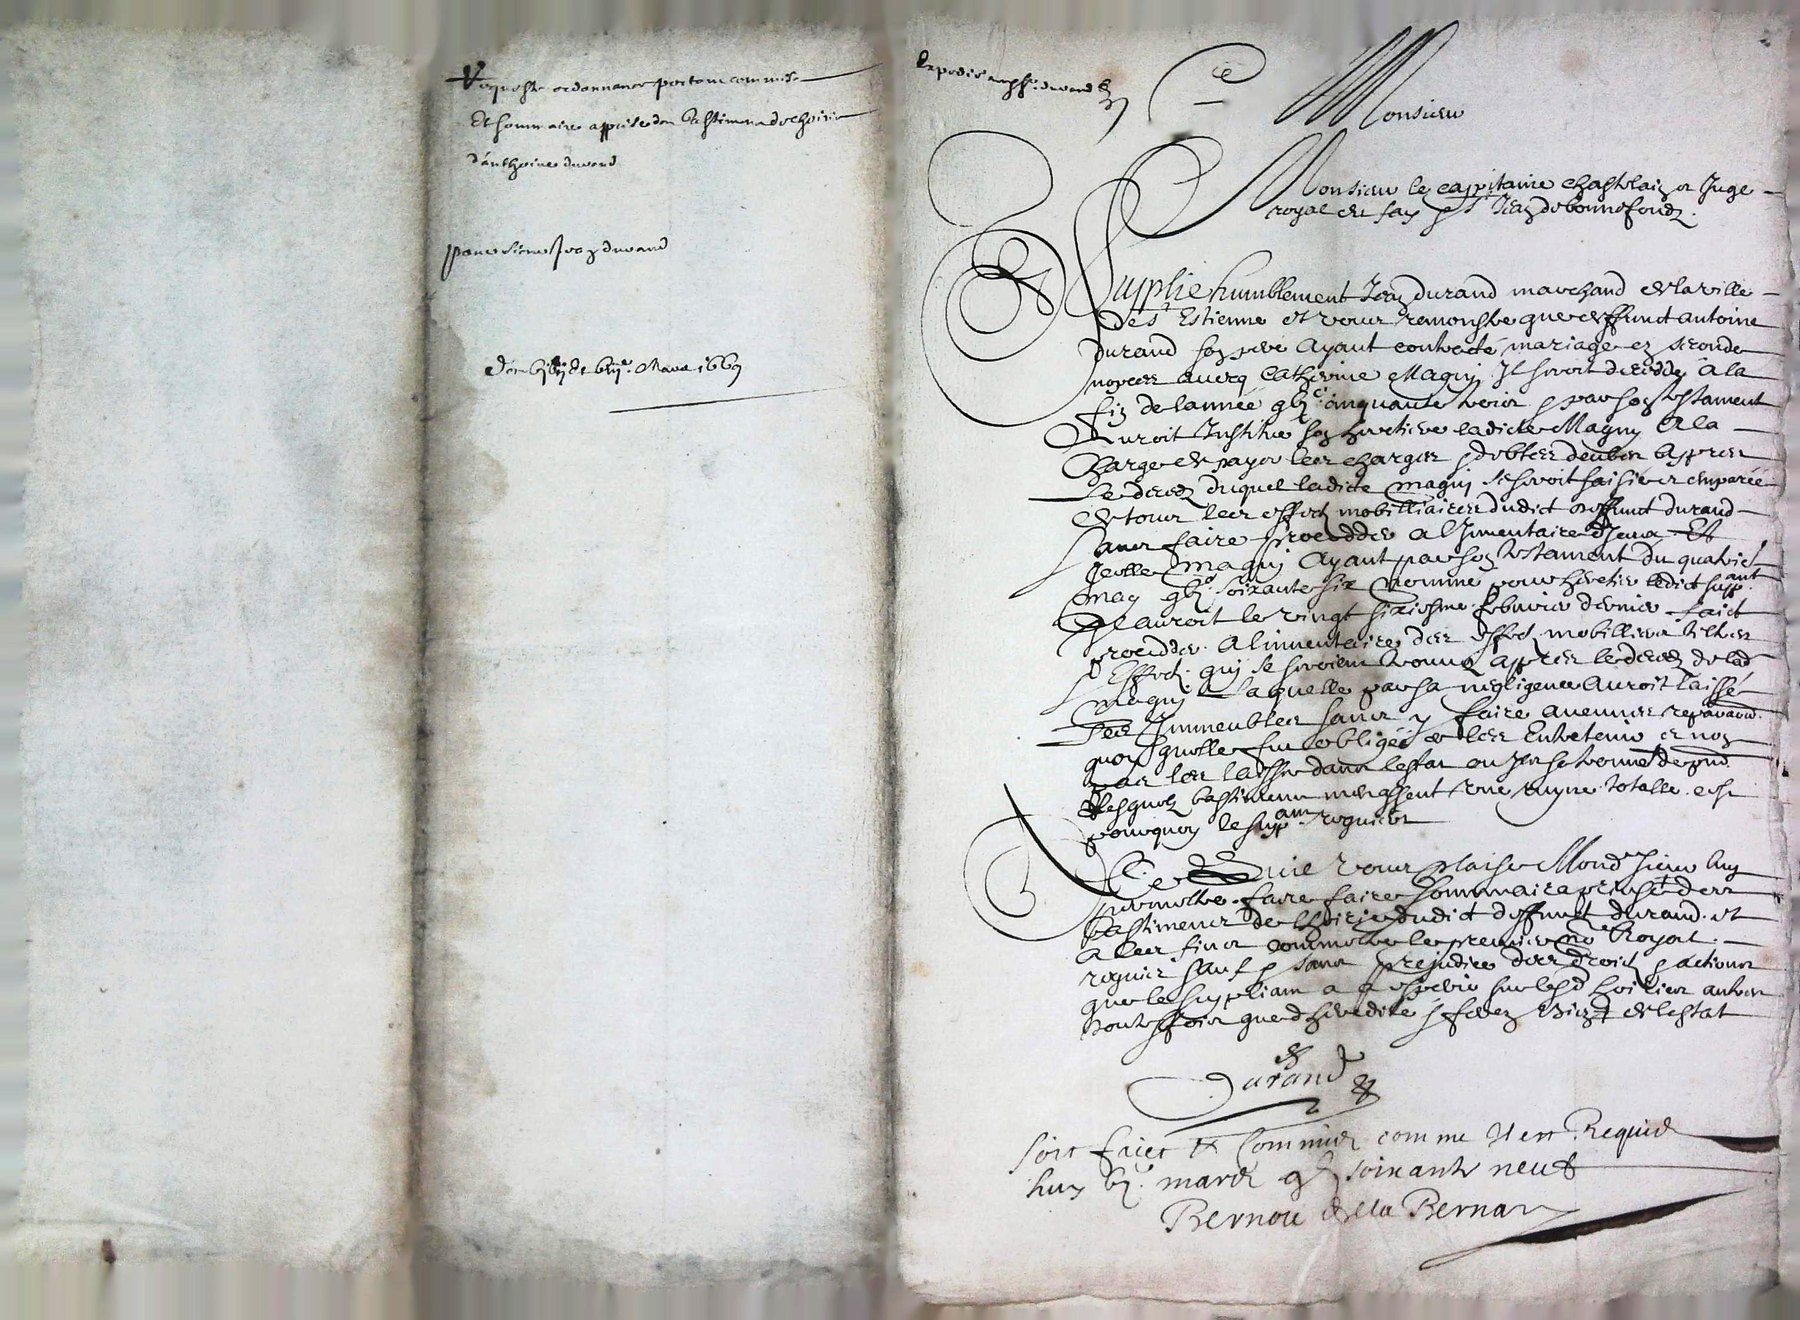 Requeste ordonnance portant commis
Et sommaire apprise des bastimens de
d'anthoine durand
pour sieur Jean durand
Mars 1669
Expedié durand
Monsieur
Monsieur le cappitaine chastelain et Juge
royal de St Jean de bonnefondz.
Supplie humblement Jean durand marchand de la ville
de St Estienne et vous remonstre que deffunct antoine
durand son pere ayant contracté mariage en seconde
nopces avecq Catherine Magny Il seroit deceddé a la
fin de lannée cinquante trois & par son testament
Auroit Institué son heritiere ladicte Magny A la
charge de payer les charges & debtes Appres
Le deces duquel ladicte magny se seroit saisie et emparée
de tous les effectz mobilliaires dudict deffunct durand
sans faire procedder a l'Inventaire Et
icelle magny Ayant par son testament du
may soixante six nomme pour heretier ledict suppant
Il auroit le vingt sixiesme febvrier dernier faict
procedder A linventaire des effectz mobilliers tiltres
& Effectz qui se seroient trouvez appres le deces de lad
magny Laquelle par sa negligence Auroit laissé
les Immeubles sans y faire aucunes reparaons
quoy quelle fut obligée de les Entretenir et non
pas les laisser dans lestat ou Ilz se trouvent
Lesquelz bastimens menassent une ruyne totalle cest
pourquoy le suppant requiert
Ce Qu'il vous plaise Mond sieur luy
permettre faire faire sommaire aprinse des
bastimens de dudict deffunct durand et
A ces fins commettre le premier nore Royal
requis sauf & sans prejudice des droictz & actions
que le suppliant a a esperer sur lesd autres
toutesfois que d'heredité & ferez bien de lestat
Durand
soit faict et commis comme Il est Requis
huy mars soixante neuf
Bernou de la Bernary